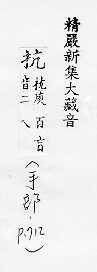 精嚴新集大藏音
抗
百音
皆二 八
(手部,
P.912)